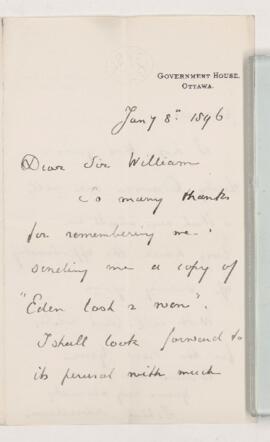 GOVERNMENT HOUSE,
OTTAWA.
Jany 8th 1896
Dear Sir William
So many thanks
for remembering me &
sending me a copy of
"Eden lost & won".
I shall look forward to
its perusal with much